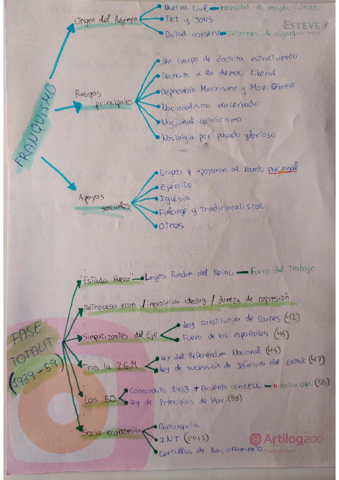 FRANQUISMO
Origen del Régimen
Guerra Civil
FET y JONS
ESTEVE
Rasgos principales
Sin cuerpo de doctrina estructurado
Rechazo a la democ. liberal
Represión Marxismo y Mov. Obrero
Nacionalismo exacerbado
Nacional catolicismo
Nostalgia por pasado glorioso
Apoyos sociales
Grupos q apoyaron al bando nacional
Ejército
Iglesia
Falange y Tradicionalistas
Otros
FASE TOTALIT. (1939-59)
"Estado Nuevo" → Leyes Fundam. del Reino → Fuero del Trabajo
Retroceso econ / involución ideolog. / dureza de represión
Simpatizantes del Eje
Ley constitutiva de Cortes (42)
Fuero de los españoles (45)
Tras la 2GM
Ley del Referendum Nacional (45)
Ley de sucesión de Jefatura del Estado (47)
Los 50
Concordato 1953 +
Ley de Principios de Mov. (58)
Socio-economía
Autarquía
INI (1941)
Cartillas de Racionamiento
Artilog200